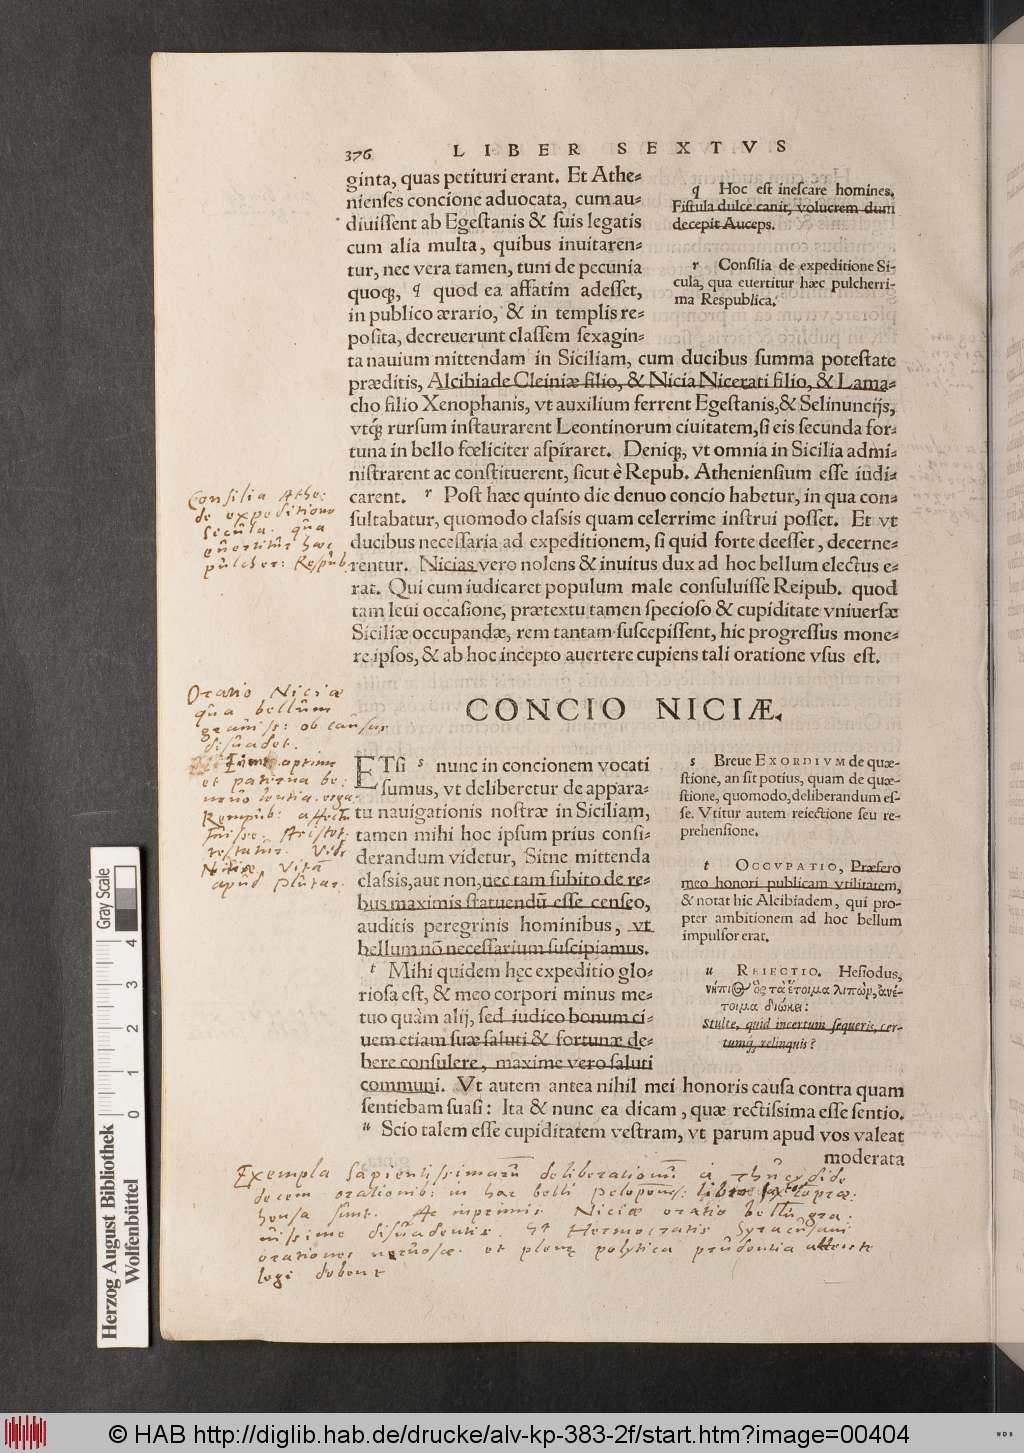 376 LIBER SEXTVS
ginta, quas petituri erant. Et Athe-
nienses concione aduocata, cum au-
diuissent ab Egestanis & suis legatis
cum alia multa, quibus inuitaren-
tur, nec vera tamen, tum de pecunia
quoq;, q quod ea affatim adesset,
in publico ærario, & in templis re-
posita, decreuerunt classem sexagin-
ta nauium mittendam in Siciliam, cum ducibus summa potestate
præditis, Alcibiade Cleiniæ filio, & Nicia Nicerati filio, & Lama-
cho filio Xenophanis, vt auxilium ferrent Egestanis, & Selinuncijs,
vtq; rursum instaurarent Leontinorum ciuitatem, si eis secunda for-
tuna in bello fœliciter aspiraret. Deniq;, vt omnia in Sicilia admi-
nistrarent ac constituerent, sicut è Repub. Atheniensium esse iudi-
carent. r Post hæc quinto die denuo concio habetur, in qua con-
sultabatur, quomodo classis quam celerrime instrui posset. Et vt
ducibus necessaria ad expeditionem, si quid forte deesset, decerne-
rentur. Nicias vero nolens & inuitus dux ad hoc bellum electus e-
rat. Qui cum iudicaret populum male consuluisse Reipub. quod
tam leui occasione, prætextu tamen specioso & cupiditate vniuersæ
Siciliæ occupandæ, rem tantam suscepissent, hic progressus mone-
re ipsos, & ab hoc incepto auertere cupiens tali oratione vsus est.
q Hoc est inescare homines.
Fistula dulce canit, volucrem dum
decepit Auceps.
r Consilia de expeditione Si-
cula, qua euertitur hæc pulcherri-
ma Respublica.
Consilia Athe:
de expeditione
Sicula. qua
euertitur haec
pulcher: Respub.
CONCIO NICIÆ.
Oratio Niciæ
qua bellum
grauiss: ob causas
disuadet.
optime
et paterna be:
neuolentia erga
Rempub: affectu
fuisse. Aristot:
testatur. Vide
Niciæ Vitā
apud Plutar.
ETsi s nunc in concionem vocati
sumus, vt deliberetur de appara-
tu nauigationis nostræ in Siciliam,
tamen mihi hoc ipsum prius consi-
derandum videtur, Sitne mittenda
classis, aut non, nec tam subito de re-
bus maximis statuendū esse censeo,
auditis peregrinis hominibus, vt
bellum nō necessarium suscipiamus.
t Mihi quidem hęc expeditio glo-
riosa est, & meo corpori minus me-
tuo quàm alij, sed iudico bonum ci-
uem etiam suæ saluti & fortunæ de-
bere consulere, maxime vero saluti
communi. Vt autem antea nihil mei honoris causa contra quam
sentiebam suasi: Ita & nunc ea dicam, quæ rectissima esse sentio.
u Scio talem esse cupiditatem vestram, vt parum apud vos valeat
moderata
s Breue EXORDIVM de quæ-
stione, an sit potius, quam de quæ-
stione, quomodo, deliberandum es-
se. Vtitur autem reiectione seu re-
prehensione.
t OCCVPATIO, Præfero
meo honori publicam vtilitatem,
& notat hic Alcibiadem, qui pro-
pter ambitionem ad hoc bellum
impulsor erat.
u REIECTIO. Hesiodus,
νήπιος ὃς τὰ ἕτοιμα λιπὼν, ἀνέ-
τοιμα διώκει:
Stulte, quid incertum sequeris, cer-
tumq; relinquis?
Exempla sapientissimarū deliberationū à Thucydide
decem orationib: in hac belli Peloponess: libro sexto præ:
hensa sunt. Ac inprimis Niciæ oratio bellū gra:
uissime disuadentis. Et Hermocratis Syracusani
orationes neruosæ. et plenæ polytica prudentia
legi debent
© HAB http://diglib.hab.de/drucke/alv-kp-383-2f/start.htm?image=00404
Herzog August Bibliothek
Wolfenbüttel
0 1 2 3 4
Gray Scale